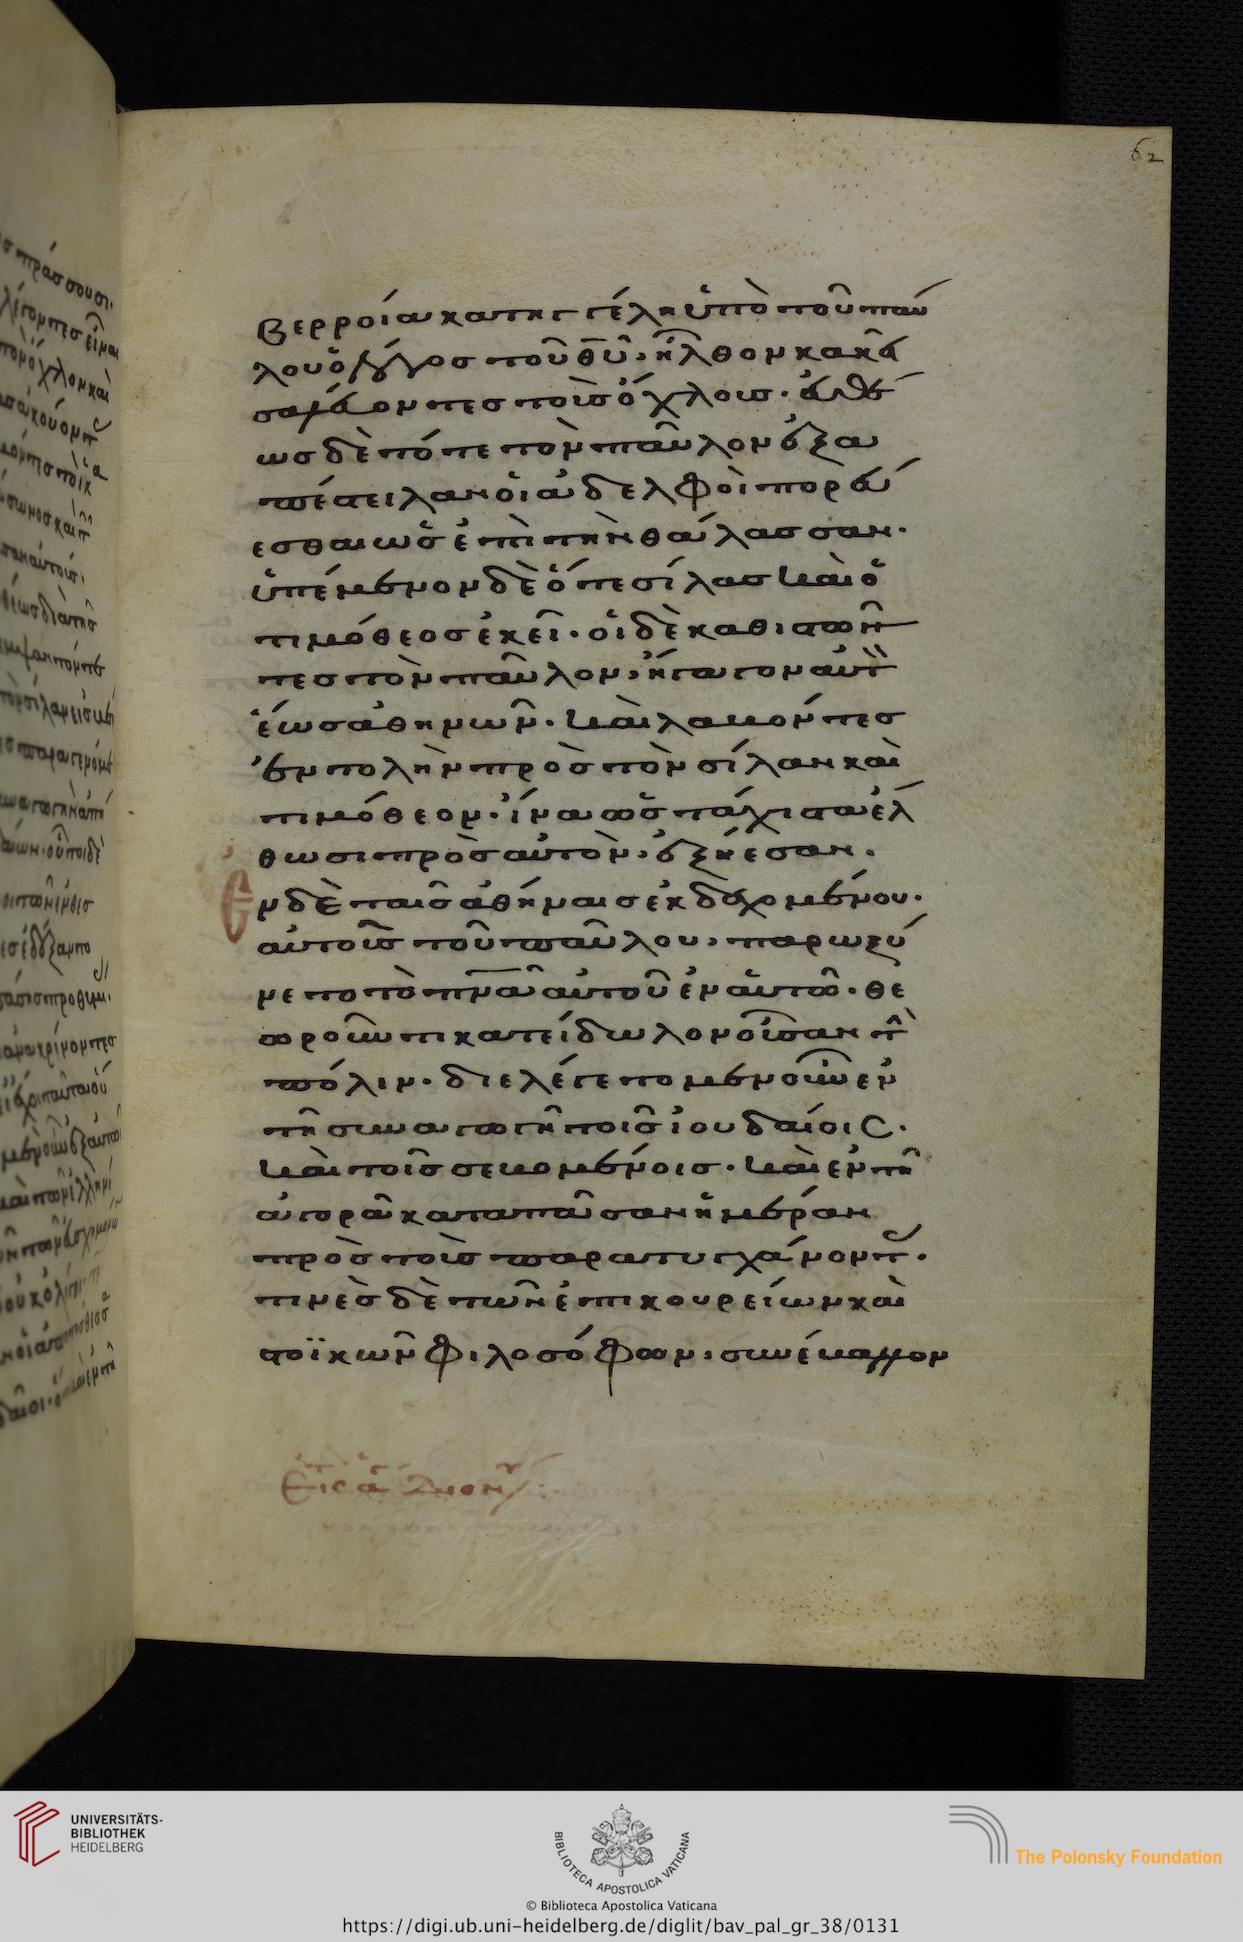 62
βερροία κατηγγέλη ὑπὸ τοῦ παύ
λου ὁ λόγος τοῦ θῦ, ἦλθον κἀκεῖ
σαλεύοντες τοὺς ὄχλους. εὐθέ
ως δὲ τότε τὸν παῦλον ἐξα
πέστειλαν οἱ ἀδελφοὶ πορεύ
εσθαι ὡς ἐπὶ τὴν θάλασσαν.
ὑπέμενον δὲ ὅ τε σίλας καὶ ὁ
τιμόθεος ἐκεῖ. οἱ δὲ καθιστῶν
τες τὸν παῦλον, ἤγαγον αὐτὸν
ἕως ἀθηνῶν. καὶ λαβόντες
ἐντολὴν πρὸς τὸν σίλαν καὶ
τιμόθεον. ἵνα ὡς τάχιστα ἔλ
θωσι πρὸς αὐτὸν, ἐξήεσαν.
Ἐν δὲ ταῖς ἀθήναις ἐκδεχομένου.
αὐτοὺς τοῦ παύλου, παρωξύ
νετο τὸ πνα αὐτοῦ ἐν αὐτῶ. θε
ωροῦντι κατείδωλον οὖσαν τὴν
πόλιν. διελέγετο μὲν οὖν ἐν
τῆ συναγωγῆ τοῖς ἰουδαίοις.
καὶ τοῖς σεβομένοις. καὶ ἐν τῆ
ἀγορᾶ κατὰ πᾶσαν ἡμέραν
πρὸς τοὺς παρατυγχάνοντας.
τινὲς δὲ τῶν ἐπικουρείων καὶ
στοϊκῶν φιλοσόφων, συνέβαλλον
UNIVERSITÄTS-
BIBLIOTHEK
HEIDELBERG
BIBLIOTECA APOSTOLICA VATICANA
The Polonsky Foundation
© Biblioteca Apostolica Vaticana
https://digi.ub.uni-heidelberg.de/diglit/bav_pal_gr_38/0131